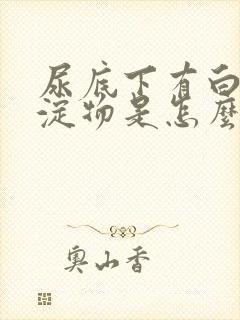 尿底下有白
淀物是怎麼
奥山香